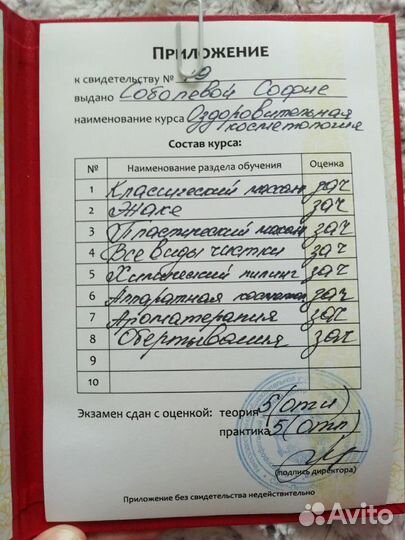 ПРИЛОЖЕНИЕ
к свидетельству № 19
выдано Соболевой Софие
наименование курса Оздоровительная
косметология
Состав курса:
№ Наименование раздела обучения Оценка
1 Классический массаж зач
2 Жаке зач
3 Пластический массаж зач
4 Все виды чистки зач
5 Химический пилинг зач
6 Аппаратная космет зач
7 Ароматерапия зач
8 Обертывания зач
9
10
Экзамен сдан с оценкой: теория 5 (отл)
практика 5 (отл)
(подпись директора)
Приложение без свидетельства недействительно
Avito